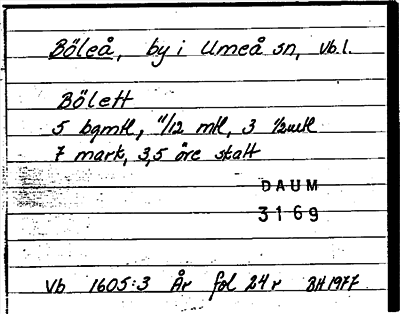 Böleå, by i Umeå sn, Vb.l.
Bölett
5 bgmtl, 11/12 mtl, 3 1/2mtl
7 mark, 3,5 öre skatt
DAUM
3169
Vb 1605:3 År fol 24r BH 1977